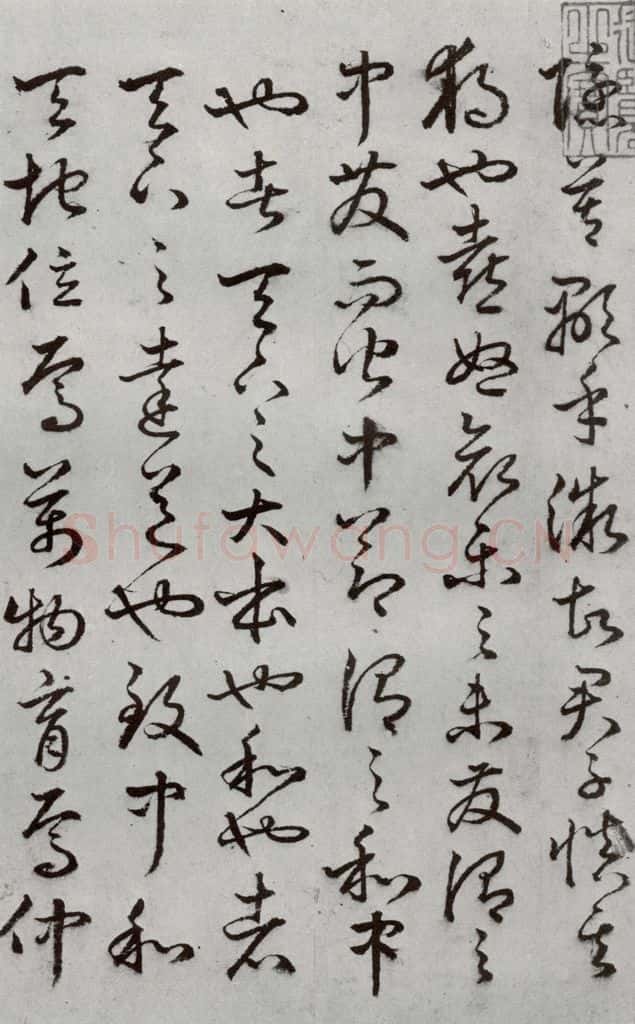 隱莫顯乎微故君子慎其
獨也喜怒哀樂之未發謂之
中發而皆中節謂之和中
也者天下之大本也和也者
天下之達道也致中和
天地位焉萬物育焉仲
Shufawang.CN